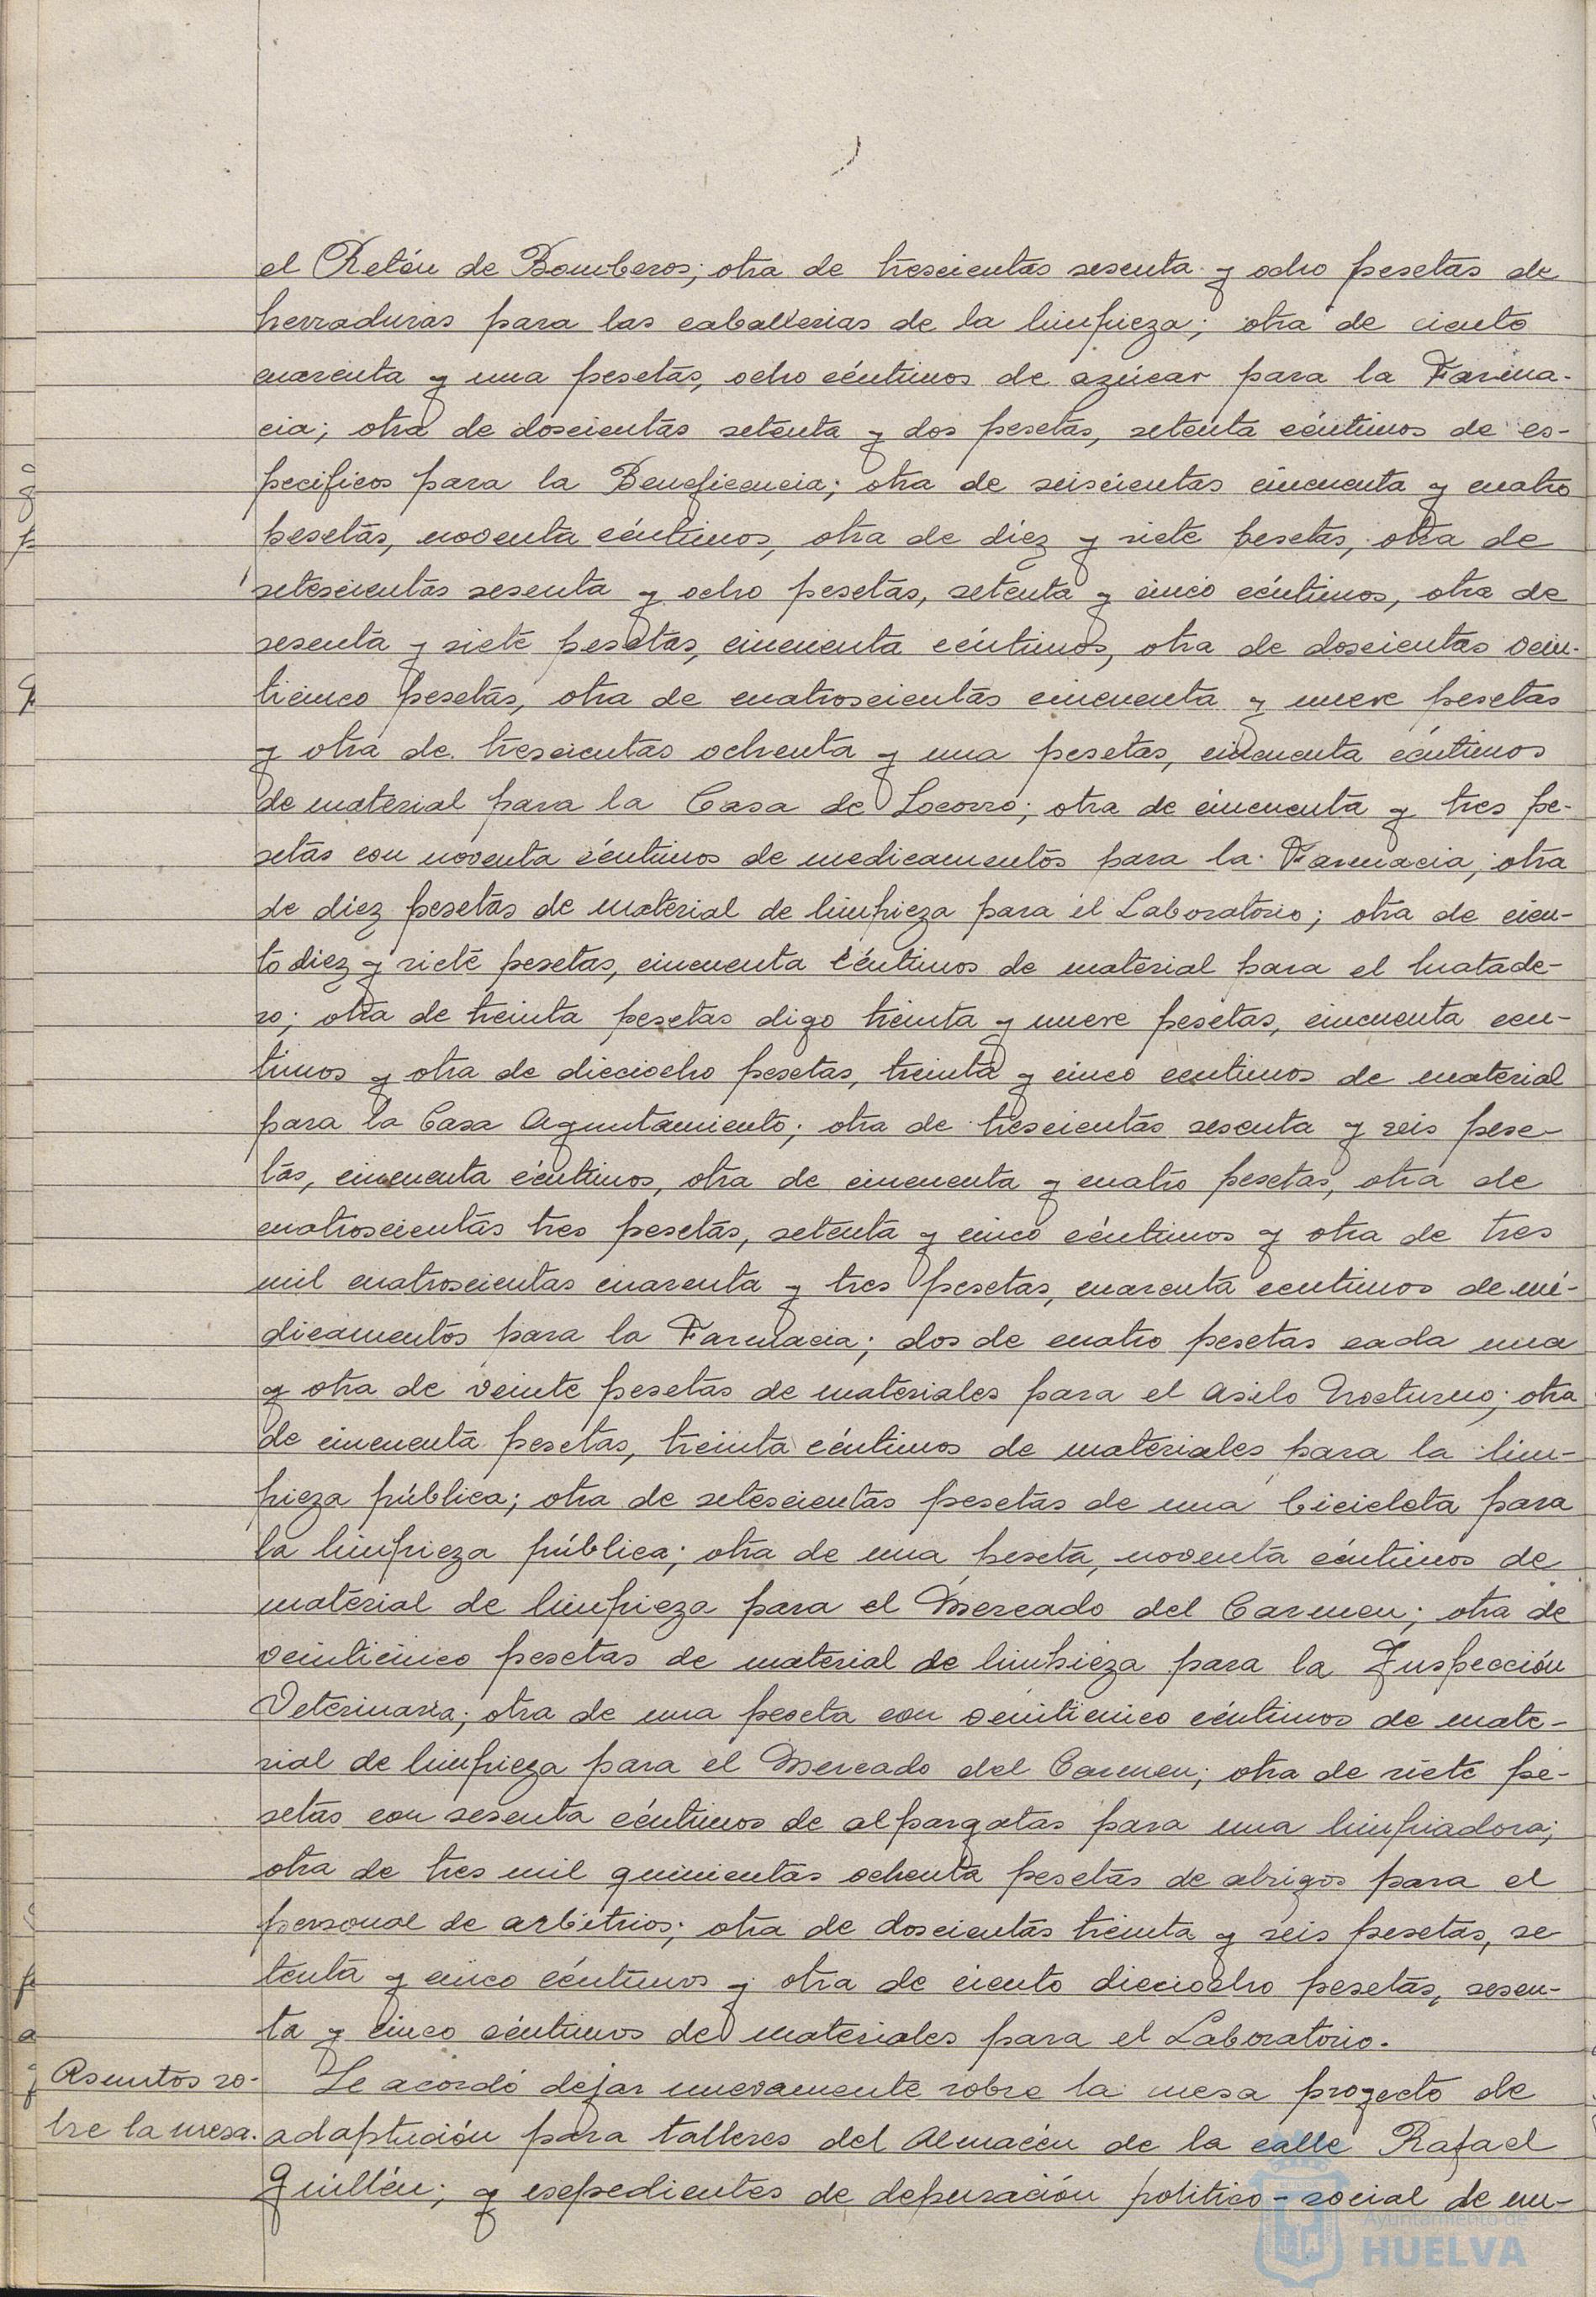 el Retén de Bomberos; otra de trescientas sesenta y ocho pesetas de
herraduras para las caballerias de la limpieza; otra de ciento
cuarenta y una pesetas, ocho céntimos de azúcar para la Farma-
cia; otra de doscientas setenta y dos pesetas, setenta céntimos de es-
pecificos para la Beneficencia; otra de seiscientas cincuenta y cuatro
pesetas, noventa céntimos, otra de diéz y siete pesetas, otra de
setescientas sesenta y ocho pesetas, setenta y cinco céntimos, otra de
sesenta y siete pesetas, cincuenta céntimos, otra de doscientas vein-
ticinco pesetas, otra de cuatroscientas cincuenta y nueve pesetas
y otra de trescientas ochenta y una pesetas, cincuenta céntimos
de material para la Casa de Socorro; otra de cincuenta y tres pe-
setas con noventa céntimos de medicamentos para la Farmacia; otra
de diéz pesetas de material de limpieza para el Laboratorio; otra de cien-
to diez y siete pesetas, cincuenta céntimos de material para el Matade-
ro; otra de treinta pesetas digo treinta y nueve pesetas, cincuenta cen-
timos y otra de dieciocho pesetas, treinta y cinco centimos de material
para la Casa Ayuntamiento; otra de trescientas sesenta y seis pese-
tas, cincuenta céntimos, otra de cincuenta y cuatro pesetas, otra de
cuatroscientas tres pesetas, setenta y cinco céntimos y otra de tres
mil cuatroscientas cuarenta y tres pesetas, cuarenta centimos de me-
dicamentos para la Farmacia; dos de cuatro pesetas cada una
y otra de veinte pesetas de materiales para el Asilo Nocturno; otra
de cincuenta pesetas, treinta céntimos de materiales para la lim-
pieza pública; otra de setescientas pesetas de una bicicleta para
la limpieza pública; otra de una peseta, noventa céntimos de
material de limpieza para el Mercado del Carmen; otra de
veinticinco pesetas de material de limpieza para la Inspección
Veterinaria; otra de una peseta con veinticinco céntimos de mate-
rial de limpieza para el Mercado del Carmen; otra de siete pe-
setas con sesenta céntimos de alpargatas para una limpiadora;
otra de tres mil quinientas ochenta pesetas de abrigos para el
personal de arbitrios; otra de doscientas treinta y seis pesetas, se
tenta y cinco céntimos y otra de ciento dieciocho pesetas, sesen-
ta y cinco céntimos de materiales para el Laboratorio.
Asuntos so-
bre la mesa.
Se acordó dejar nuevamente sobre la mesa proyecto de
adaptución para talleres del Almacén de la calle Rafael
Guillén; y espedientes de depuración politico-social de em-
Ayuntamiento de
HUELVA